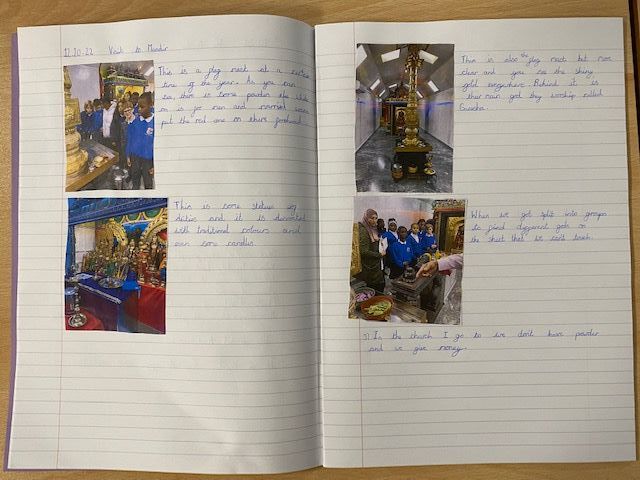 12.10.22 Visit to Mandir
This is a flag mast at a certain
time of the year. As you can
see, there is some powder the white
on is for men and married women
put the red one on there forehead.
This is some statues of
deities and it is decorated
with traditional colours and
even some candles.
This is also the flag mast but more
clear and you see the shiny
gold everywhere. Behind it is
their main god they worship called
When we got split into groups
to find different gods on
the sheet that we can't touch.
In the church I go to we don't have powder
and we give money.